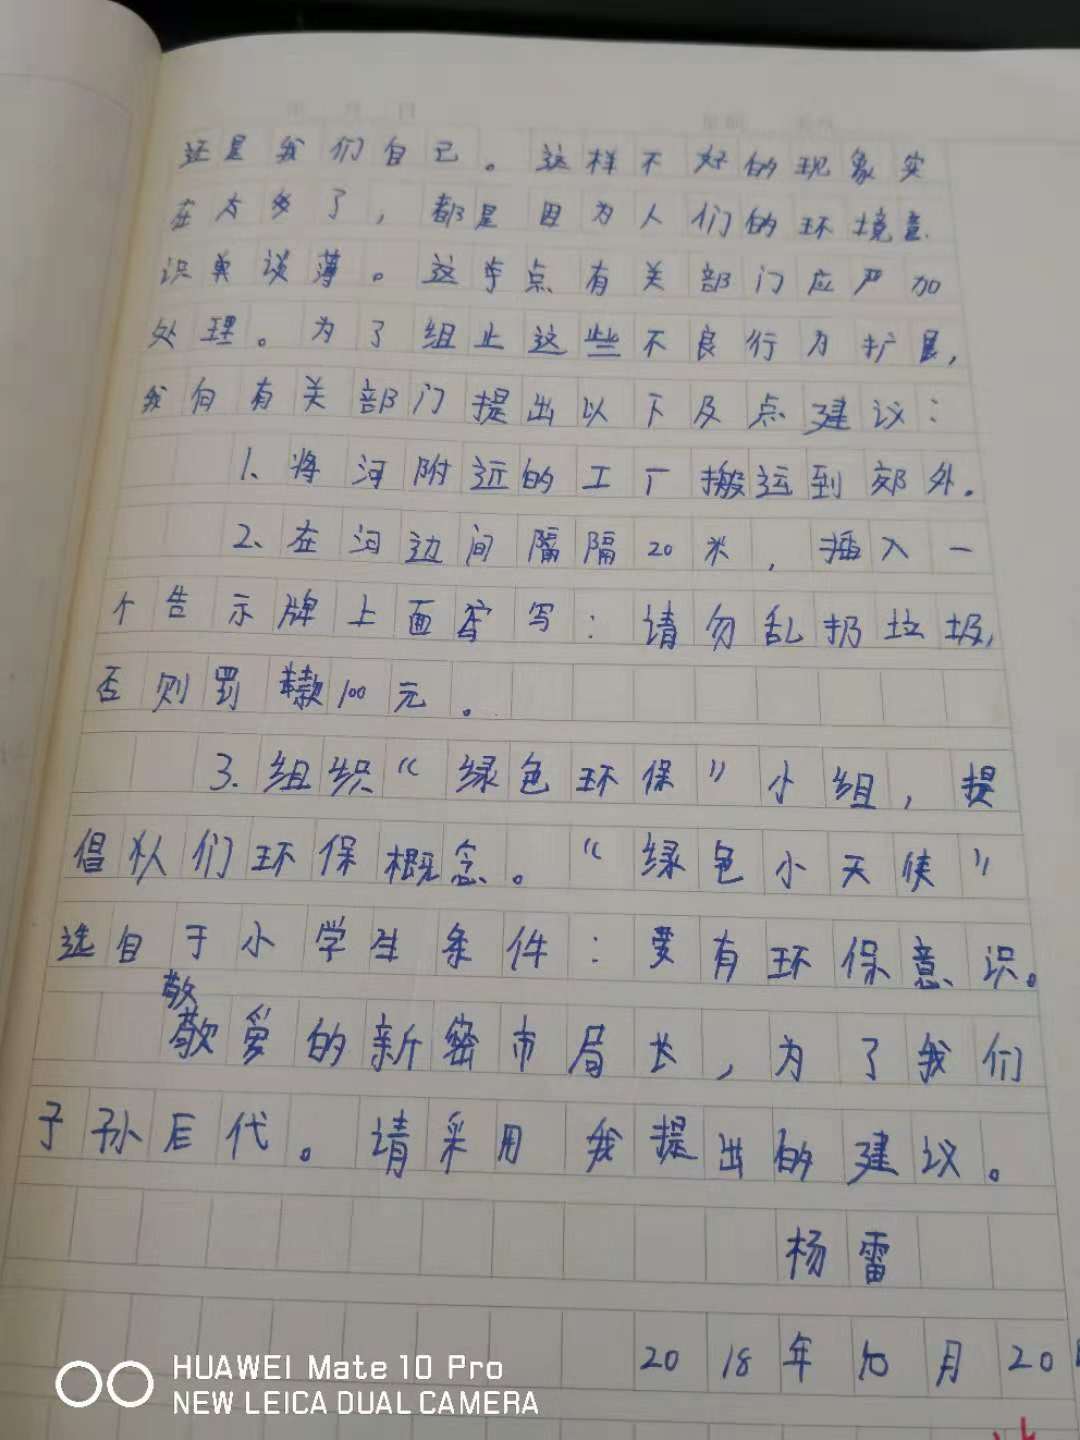 还是我们自己。这样不好的现象实
在太多了，都是因为人们的环境意
识谈薄。这点有关部门应严加
处理。为了组止这些不良行为扩展，
我向有关部门提出以下及点建议：
1、将河附近的工厂搬运到郊外。
2、在河边间隔隔20米，插入一
个告示牌上面写：请勿乱扔垃圾，
否则罚款100元。
3.组织“绿色环保”小组，提
倡人们环保概念。“绿色小天使”
选自于小学生条件：要有环保意识。
敬爱的新密市局长，为了我们
子孙后代。请采用我提出的建议。
杨雷
2018年10月20
HUAWEI Mate 10 Pro
NEW LEICA DUAL CAMERA